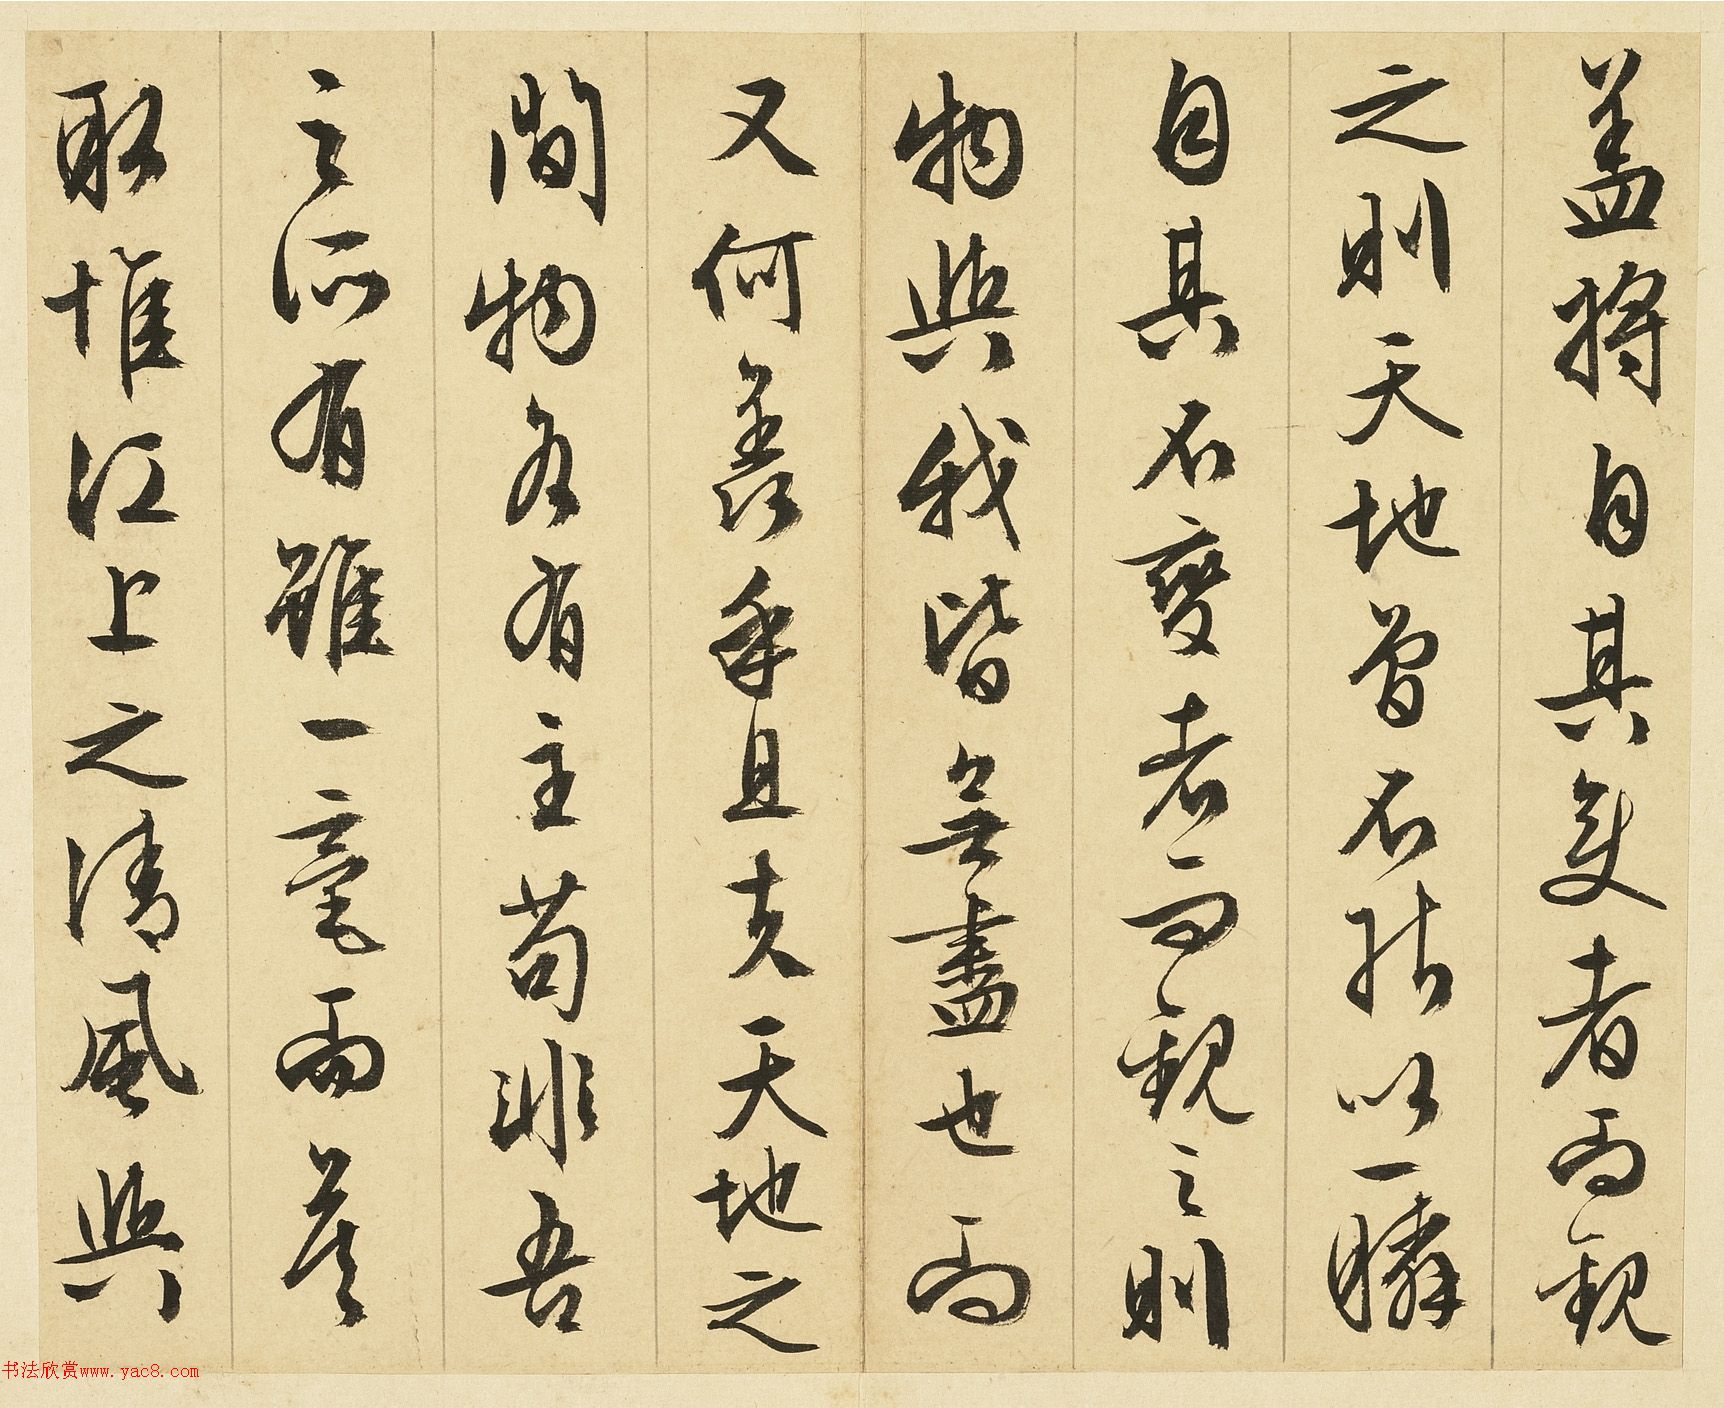 盖將自其變者而觀
之則天地曾不能以一瞬
自其不變者而觀之則
物與我皆無盡也而
又何羨乎且夫天地之
間物各有主苟非吾
之所有雖一毫而莫
取惟江上之清風與
书法欣赏www.yac8.com